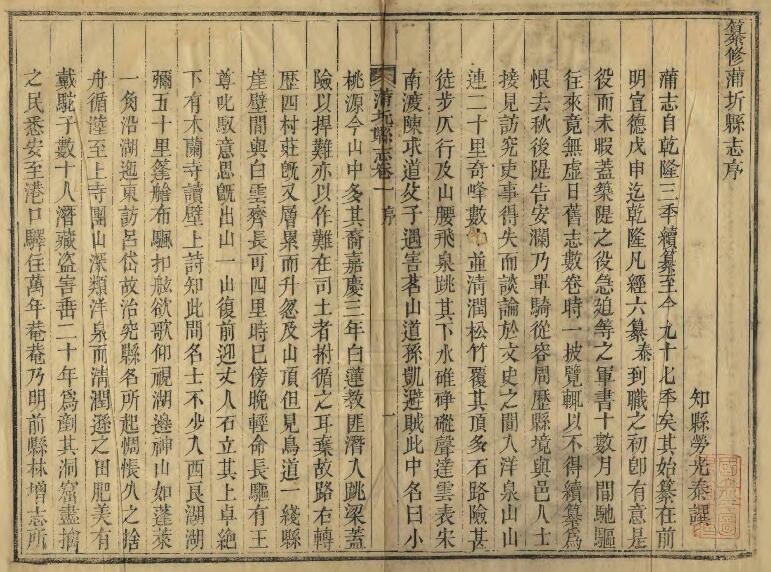 纂修蒲圻縣志序
知縣勞光泰譔
蒲志自乾隆三年續纂至今九十七季矣其始纂在前
明宣德戊申迄乾隆凡經六纂泰到職之初卽有意是
役而未暇蓋築隄之役急迫等之軍書十數月間馳驅
往來竟無虛日舊志數卷時一披覽輒以不得續纂爲
恨去秋後隄告安瀾乃單騎從容周歷縣境與邑人士
接見訪究吏事得失而談論於文史之間入洋泉山山
連二十里奇峰數 並清潤松竹覆其頂多石路險甚
徒步仄行及山腰飛泉跳其下水硉硉礮聲達雲表宋
南渡陳求道父子遇害茗山道孫凱避賊此中名曰小
蒲圻縣志卷一 序 一
桃源今山中多其裔嘉慶三年白蓮教匪潛入跳梁蓋
險以捍難亦以作難在司土者拊循之耳葉故路右轉
歷四村莊旣又層累而升忽及山頂但見鳥道一綫縣
崖壁間與白雲齊長可四里時巳傍晚輕命長驅有王
尊叱馭意思旣出山一山復前迎丈人石立其上卓絶
下有木蘭寺讀壁上詩知此間名士不少入西良湖湖
彌五十里篷艙布颿扣舷欲歌仰視湖邊神山如蓬萊
一角沿湖迤東訪呂岱故治究縣名所起惆悵久之捨
舟循陸至上寺團山深類洋泉而清潤遜之田肥美有
戴駝子數十人潛藏盜害垂二十年爲剷其洞窟盡擒
之民悉安至港口驛住萬年菴菴乃明前縣林增志所